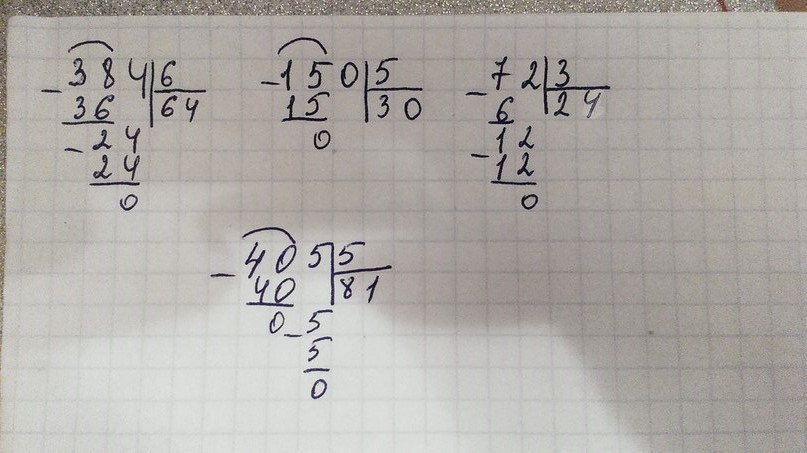 384 6
36 64
24
24
0
150 5
15 30
0
72 3
6 24
12
12
0
405 5
40 81
0 5
5
0